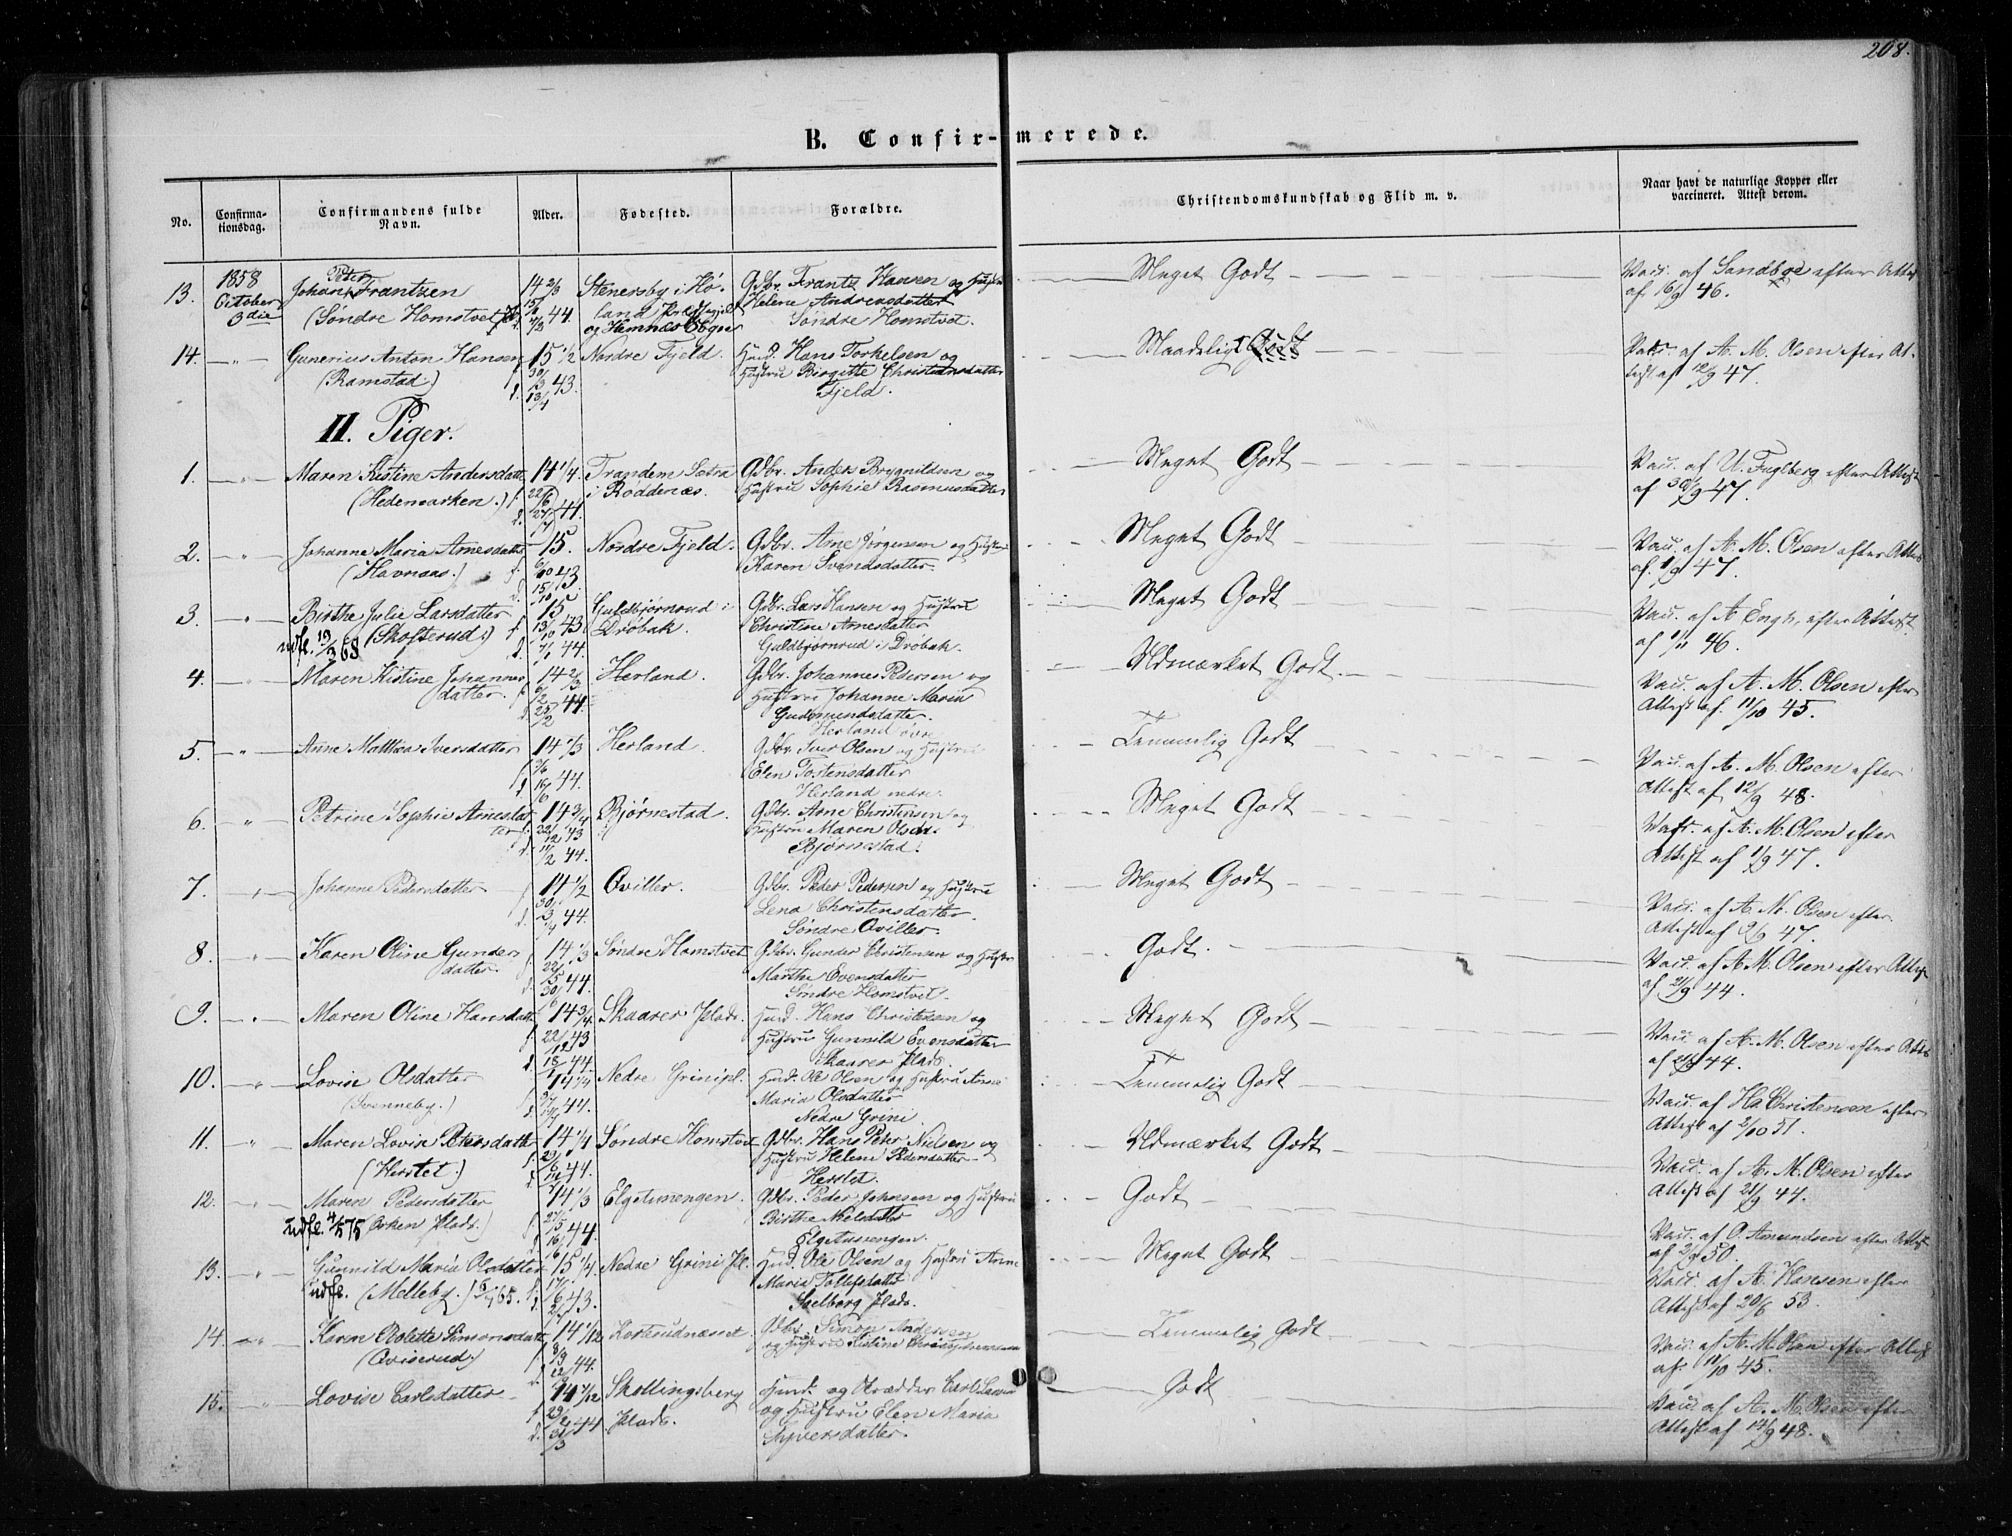 208.
B. Confirmerede.
No.
Confirmationsdag.
Confirmandens fulde Navn.
Alder.
Fødested.
Forældre.
Christendomskundskab og Flid m. v.
Naar havt de naturlige Kopper eller vaccineret. Attest derom.
13. 1858 October 3die Johan Peter Frantzen 14 2/3 Stenersby i Hø- Gdbr. Frantz Hansen og Hustru Meget Godt Vacc. af Sandboe efter Attest
(Søndre Homstvet) 44. land Præstegjeld Helene Andreasdatter af 16/9 46.
og Hemnæs Sogn Søndre Homstvet.
14. " Gunerius Anton Hansen 15 1/2 Nordre Fjeld. Huusm. Hans Torkelsen og Maadeligt Godt Vacc. af A. M. Olsen efter At-
(Ramstad) f. 30/3 43. Hustru Birgitte Christensdatter test af 12/9 47.
d. 13/4 Fjeld.
II. Piger.
1. " Maren Kistine Andersdatter 14 1/4. Trandem Sætra Gdbr. Anders Brynildsen og Meget Godt Vacc. af U. Fuglberg efter Attest
(Hedemarken.) f. 22/6 i Røddenæs. Hustru Sophie Rasmusdatter af 30/9 47.
d. 27/7 44.
2. " Johanne Maria Arnesdatter 15. Nordre Fjeld. Gdbr. Arne Jørgensen og Hustru Meget Godt Vacc. af A. M. Olsen efter Attest
(Havnaas.) f. 6/10 43 Karen Svendsdatter. af 1/9 47.
d. 15/10
3. " Birthe Julie Larsdatter 15 Guldbjørnrud i Gdbr. Lars Hansen og Hustru Meget Godt Vacc. af A. Engh, efter Attest
udfl. 19/3 68 (Skofterud) f. 13/10 43 Drøbak. Christine Arnesdatter af 1/11 46.
d. 7/1 44. Guldbjørnrud i Drøbak.
4. " Maren Kistine Johannes- 14 2/3 Herland. Gdbr. Johannes Pedersen og Udmærket Godt. Vacc. af A. M. Olsen efter
datter. f. 6/2 44. Hustru Johanne Maria Attest af. 11/10 45.
d. 25/2 Gudmundsdatter.
Herland øvre
5. " Anne Mathea Iversdatter 14 1/3 Herland. Gdbr. Iver Olsen og Hustru Temmelig Godt Vacc. af A. M. Olsen efter
44. Elen Tostensdatter Attest af 12/9 48.
d. 16/6 Herland nedre.
6. " Petrine Sophie Arnesdat- 14 3/4 Bjørnestad. Gdbr. Arne Christensen og Meget Godt Vacc. af A. M. Olsen efter
ter f. 22/12 43 Hustru Maren Olsdr. Attest af 1/9 47.
d. 11/2 44. Bjørnestad.
7. " Johanne Pedersdatter 14 1/2 Qviller. Gdbr. Peder Pedersen og Hustru Meget Godt Vacc. af A. M. Olsen efter
f. 30/3 44. Lena Christensdatter.
d. Søndre Qviller.
8. " Karen Oline Gunders- 14 1/3 Søndre Homstvet Gdbr. Gunder Christensen og Hustru Godt. Vacc. af A. M. Olsen efter Attest
datter. f. 22/5 44. Marthe Evensdatter af 21/9 44.
d. 30/6 Søndre Homstvet.
9. " Maren Oline Hansdatter 14 3/4. Skaarer Plads. Huusm. Hans Christensen og Meget Godt Vacc. af A. M. Olsen efter Attest
f. 22/12 43 Hustru Gunnild Evensdatter
d. 18/1 44. Skaarer Plads.
10. " Lovise Olsdatter 14 1/4 Nedre Grinipl. Huusm. Ole Olsen og Hustru Anne Temmelig Godt Vacc. af Hs. Christensen efter
(Svenneby.) 44. Maria Olsdatter Attest af 2/10 51.
Nedre Grini
11. " Maren Lovise Petersdatter 14 1/4 Søndre Homstvet Gdbr. Hans Peter Nielsen og Udmærket Godt Vacc. af A. M. Olsen efter
(Herstet.) 44. Hustru Helene Pedersdatter Attest af 21/9 47.
Herstet.
12. " Maren Pedersdatter 14 1/3 Elgetsmengen. Gdbr. Peder Johnsen og Hustru Godt Vacc. af O. Amundsen efter Attest
udfl. 4/5 75 (Ørken Plads.) f. 27/5 44. Birthe Nielsdatter
d. 16/6 Elgetsmengen.
13. " Gunnild Maria Olsdatter 15 1/4. Nedre Grini Pl. Huusm. Ole Olsen og Hustru Anne Meget Godt Vacc. af A. Hansen efter
udfl. (Melleby.) 65. f. 17/6 43. Maria Tollefsdatter Attest af 20/6 53.
Plads.
14. " Karen Bolette Simonsdatter 14 7/12 Kosterudnæset Gdbr. Simon Andersen Temmelig Godt Vacc. af A. M. Olsen efter Attest
(Qviserud.) f. 8/3 44. og Hustru Kistine af 11/10 45.
15. " Lovise Carlsdatter 14 7/12 Skollingsberg Huusm. og Skrædder Carl Larsen Godt Vacc. af A. M. Olsen efter
f. 29/2 44 Plads. og Hustru Elen Maria Attest af 14/9 48.
d. 31/3 Syversdatter.